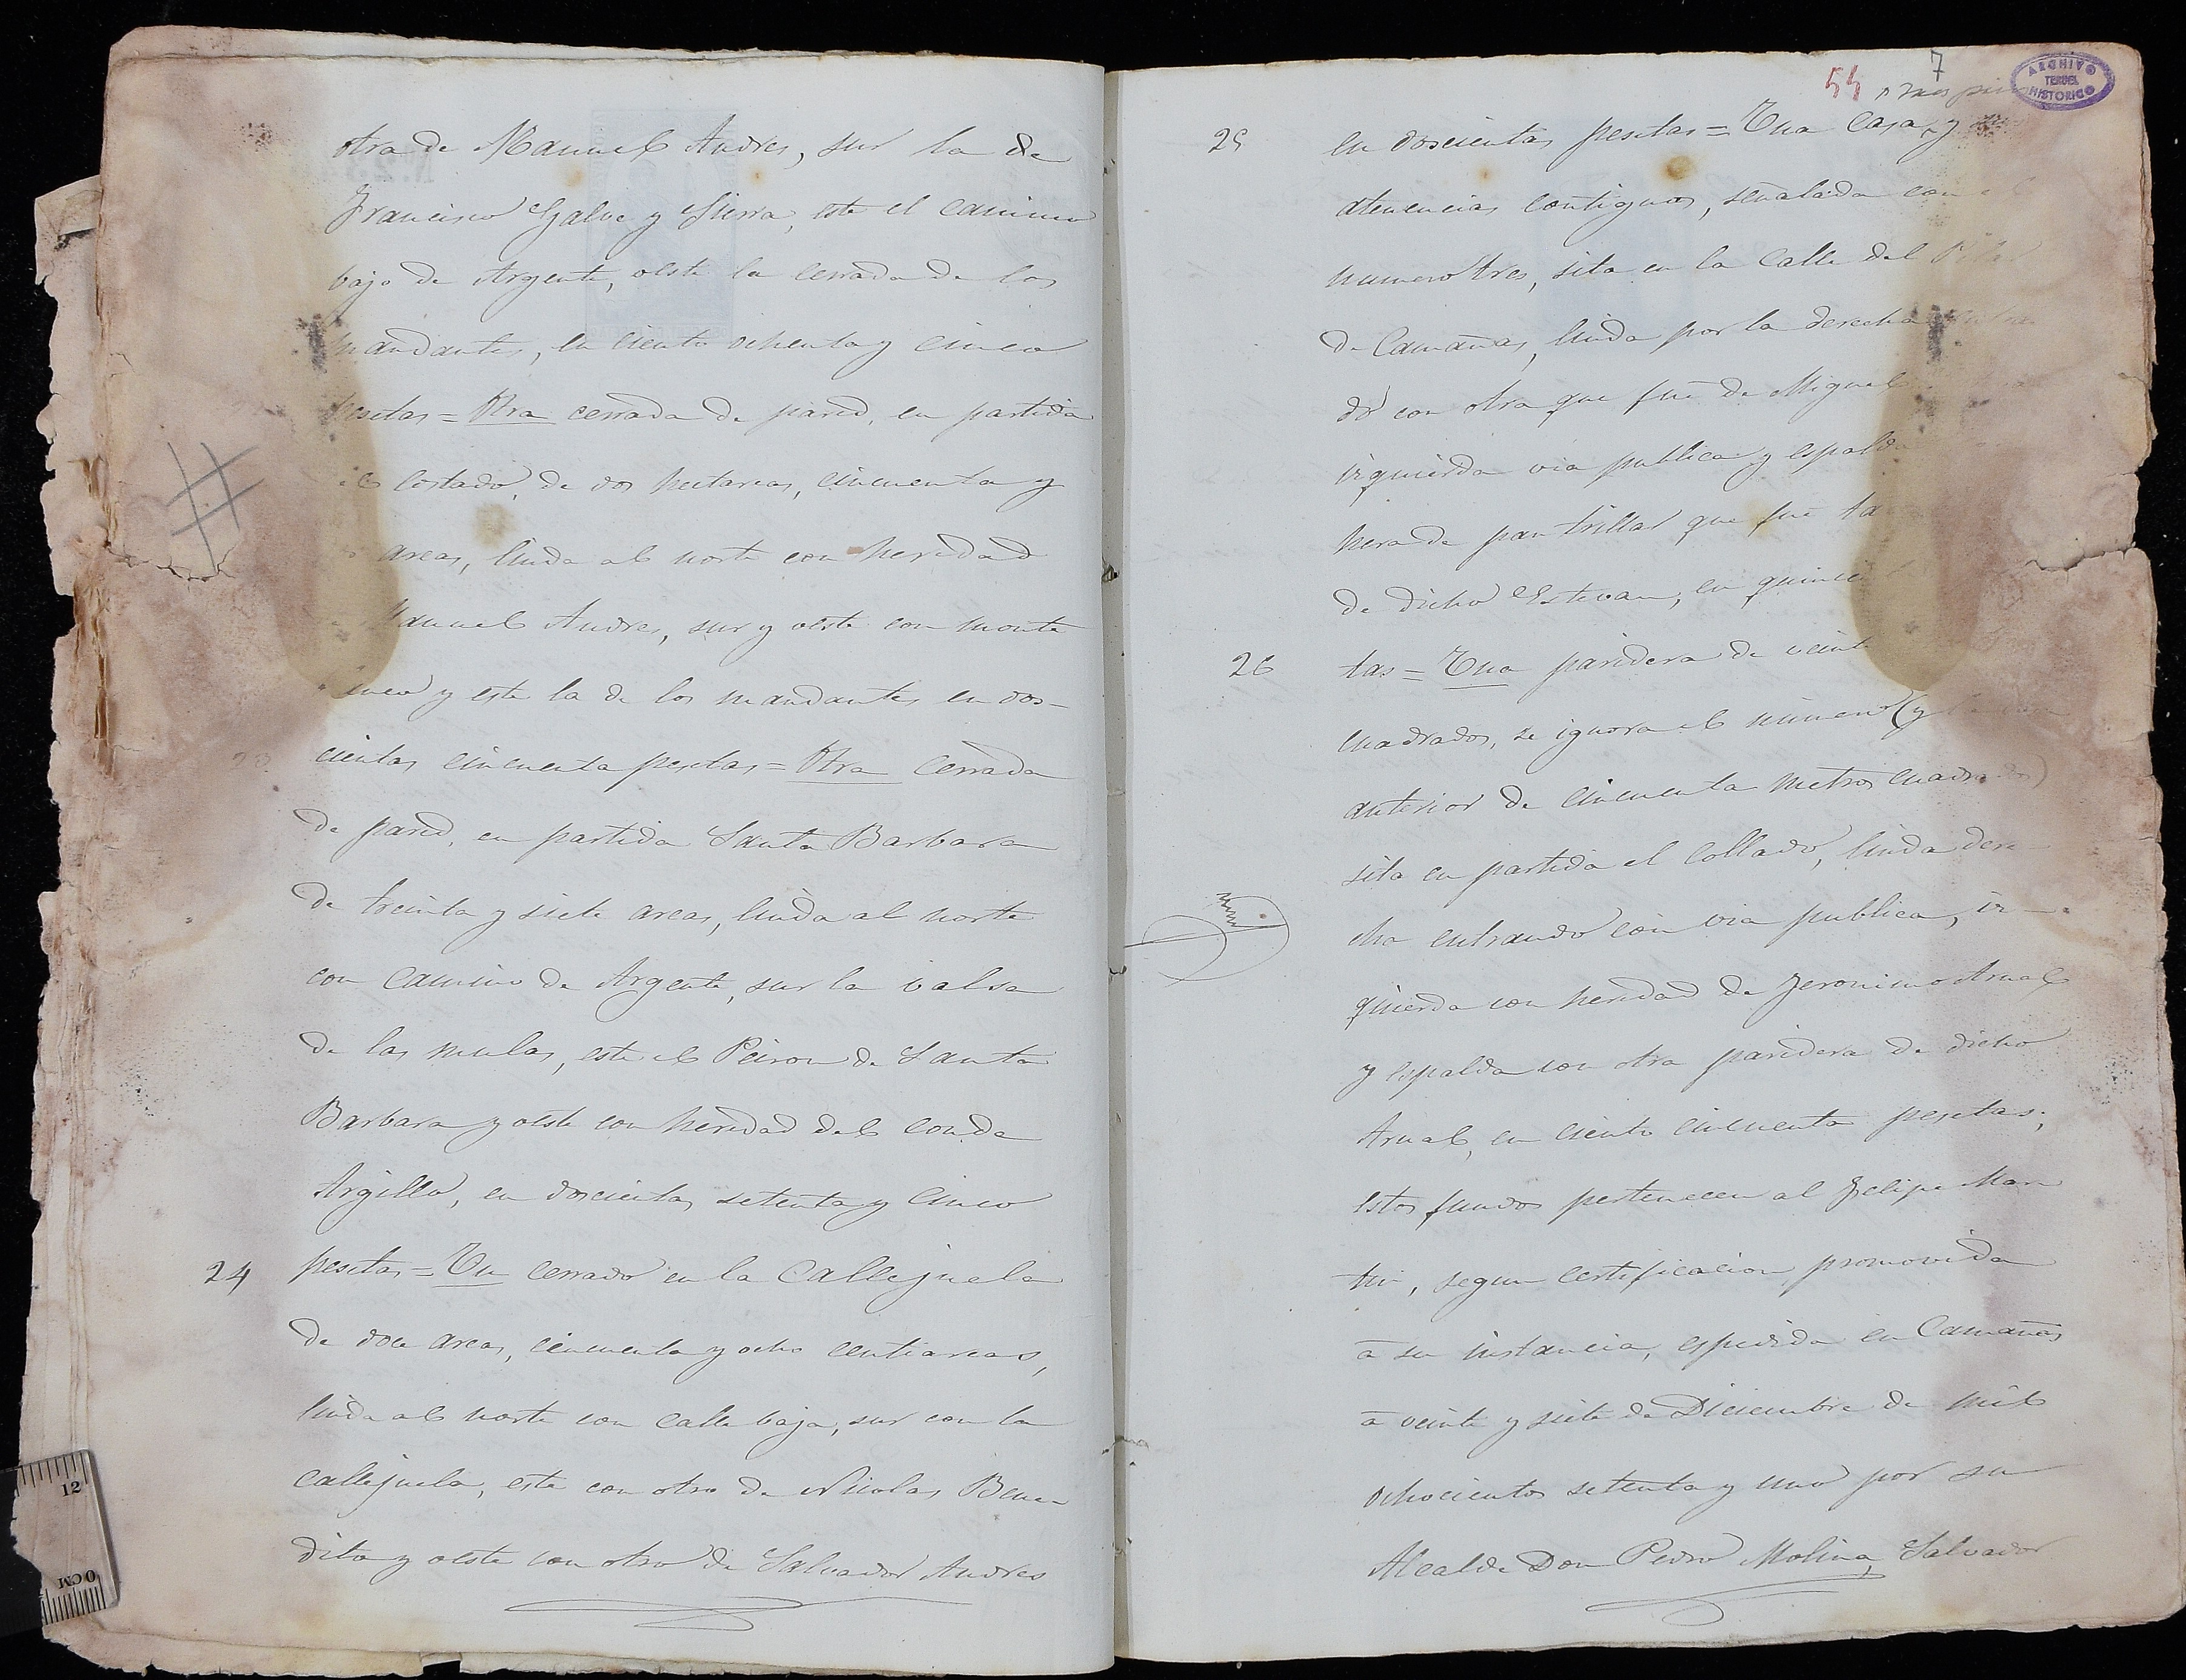 otra de Manuel Andres, sur la de
Francisco Galve y Sierra, este el camino
bajo de Argente, oeste la cerrada de los
mandantes, en ciento ochenta y cinco
pesetas = Otra cerrada de pared, en partida
el Costado, de dos hectareas, cincuenta y
areas, linda al norte con heredad
Manuel Andres, sur y oeste con monte
y este la de los mandantes en dos-
23 cientas cincuenta pesetas = Otra cerrada
de pared, en partida Santa Barbara
de treinta y siete areas, linda al norte
con camino de Argente, sur la valsa
de las mulas, este el Peiron de Santa
Barbara y oeste con heredad del Conde
Argillo, en doscientas setenta y cinco
24 pesetas = Un cerrado en la Callejuela
de doce areas, cincuenta y ocho centiareas,
linda al norte con calle baja, sur con la
callejuela, este con otro de Nicolas Bene-
dito y oeste con otro de Salvador Andres
54 7
ARCHIVO
TERUEL
HISTORICO
25 en doscientas pesetas = Una casa, y
atenencias contiguas, señalada con el
numero tres, sita en la Calle del
de Camañas, linda por la derecha
do con otra que fué de Miguel
izquierda via publica y espalda
hera de pan trillar que fué
de dicho Estevan, en quince
26 tas = Una paridera de veinte
cuadrados, se ignora el número (y
anterior de cincuenta metros cuadrados)
sita en partida el Collado, linda dere-
cha entrando con via publica, iz-
quierda con heredad de Jeronimo Arnal
y espalda con otra paridera de dicho
Arnal, en ciento cincuenta pesetas;
estos fundos pertenecen al Felipe Mar
tin, segun certificacion, promovida
á su instancia, espedida en Camañas
á veinte y siete de Diciembre de mil
ochocientos setenta y uno por su
Alcalde Don Pedro Molina, Salvador